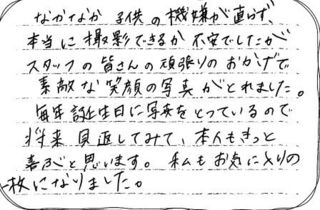 なかなか 子供の機嫌が直らず、
本当に撮影できるか不安でしたが
スタッフの皆さんの頑張りのおかげで
素敵な笑顔の写真がとれました。
毎年誕生日に写真をとっているので
将来見返してみて、本人もきっと
喜ぶと思います。私もお気に入りの
一枚になりました。